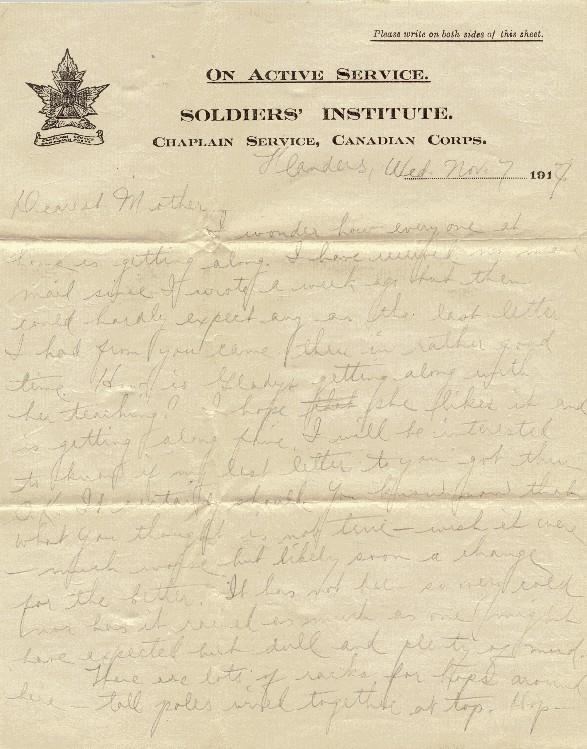 Please write on both sides of this sheet.
ON ACTIVE SERVICE.
SOLDIERS' INSTITUTE.
CHAPLAIN SERVICE, CANADIAN CORPS.
Flanders, Wed. Nov. 7 1917
Dearest Mother,
I wonder how everyone at
home is getting along. I have received no more
mail since I wrote a week ago but then
could hardly expect any as the last letter
I had from you came thru in rather good
time. How is Gladys getting along with
her teaching? I hope that she likes it and
is getting along fine. I will be interested
to know if my last letter to you got thru
O.K. It should you know now that
what you thought is not true – wish it were
– much worse but likely soon a change
for the better. It has not been so very cold
nor has it rained as much as one might
have expected but dull and plenty of mud.
There are lots of racks for hops around
here – tall poles wired together at top. Hop –